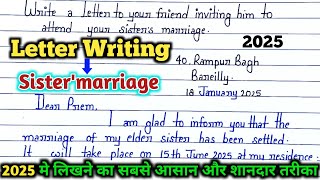 Write a letter to your friend inviting him to
attend your sister's marriage.
Letter Writing
2025
40. Rampur Bagh
Bareilly.
Sister'marriage
18 January 2025
Dear Prem,
I am glad to inform you that the
marriage of my elder sister has been settled.
It will take place on 15th June 2025 at my residence.
2025 मे लिखने का सबसे आसान और शानदार तरीका